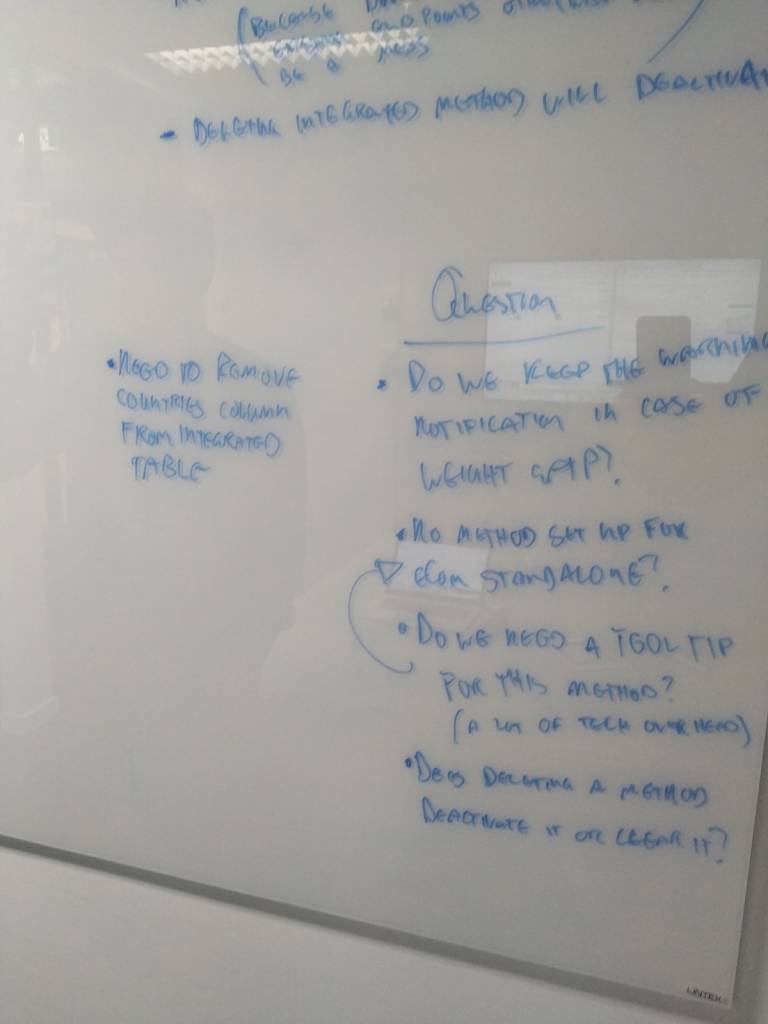 (BECAUSE
END POINTS
BE A MESS
- DELETING INTEGRATED METHOD WILL DEACTIVAT
QUESTION
• NEED TO REMOVE
COUNTRIES COLUMN
FROM INTEGRATED
TABLE
• DO WE KEEP THE WARNING
NOTIFICATION IN CASE OF
WEIGHT GAP?
• NO METHOD SET UP FOR
STANDALONE?
• DO WE NEED A TOOL TIP
FOR THIS METHOD?
(A LOT OF TECH OVER HEAD)
• DOES DELETING A METHOD
DEACTIVATE IT OR CLEAR IT?